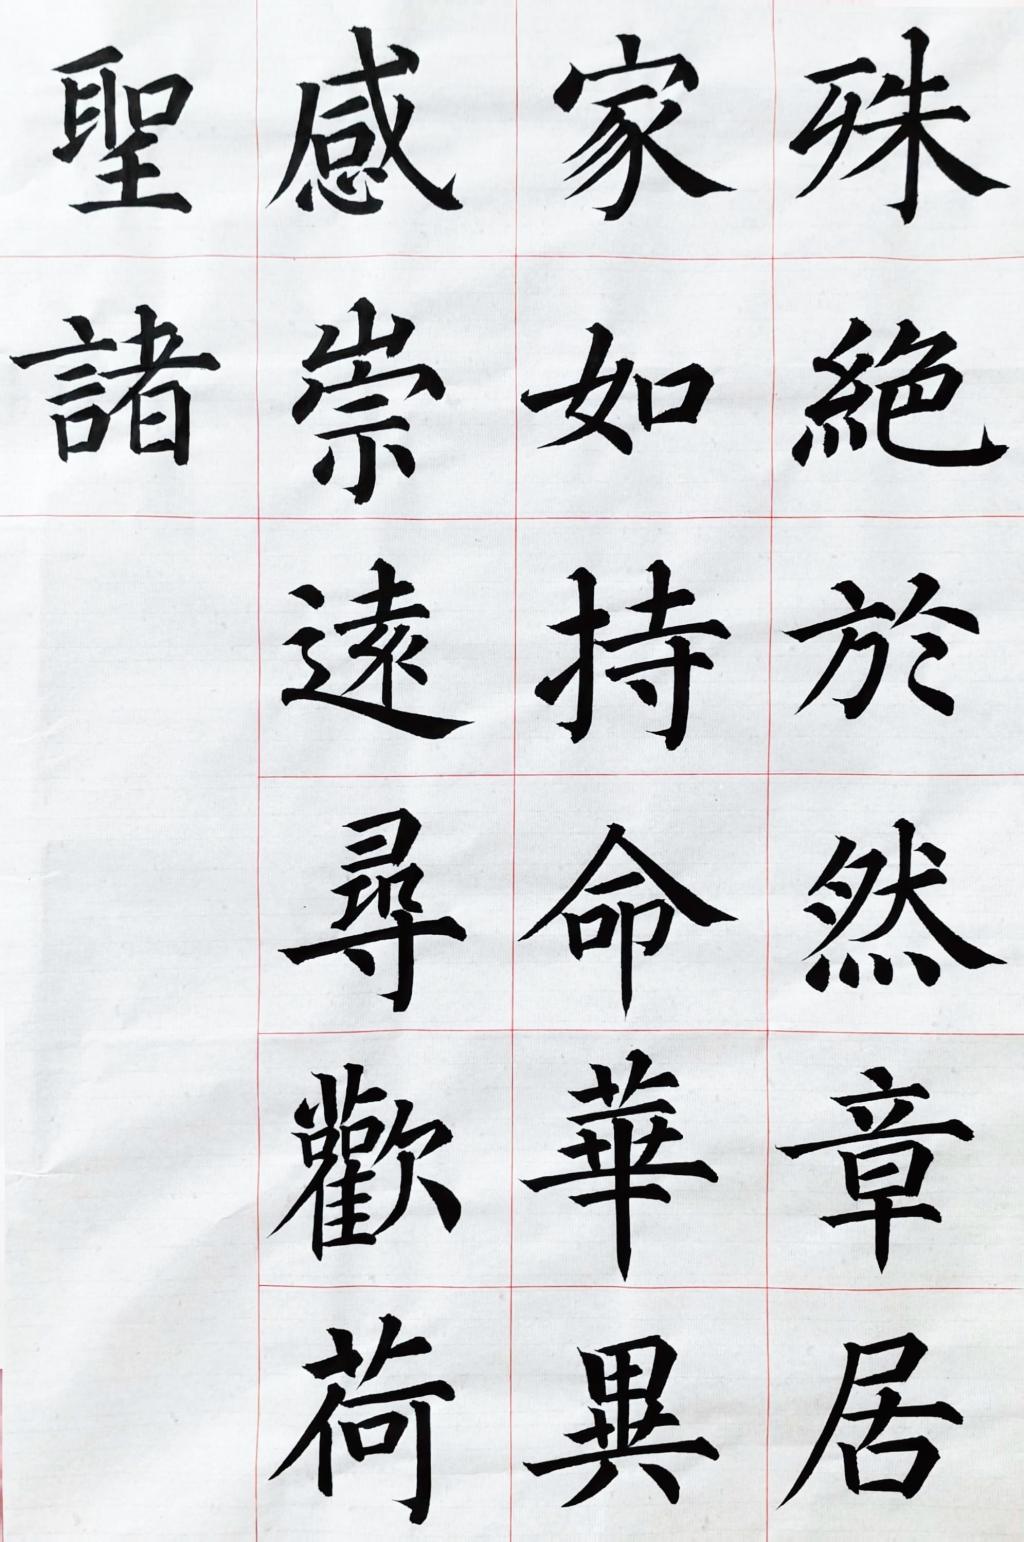 殊絕於然章居
家如持命華異
感崇遠尋歡荷
聖諸